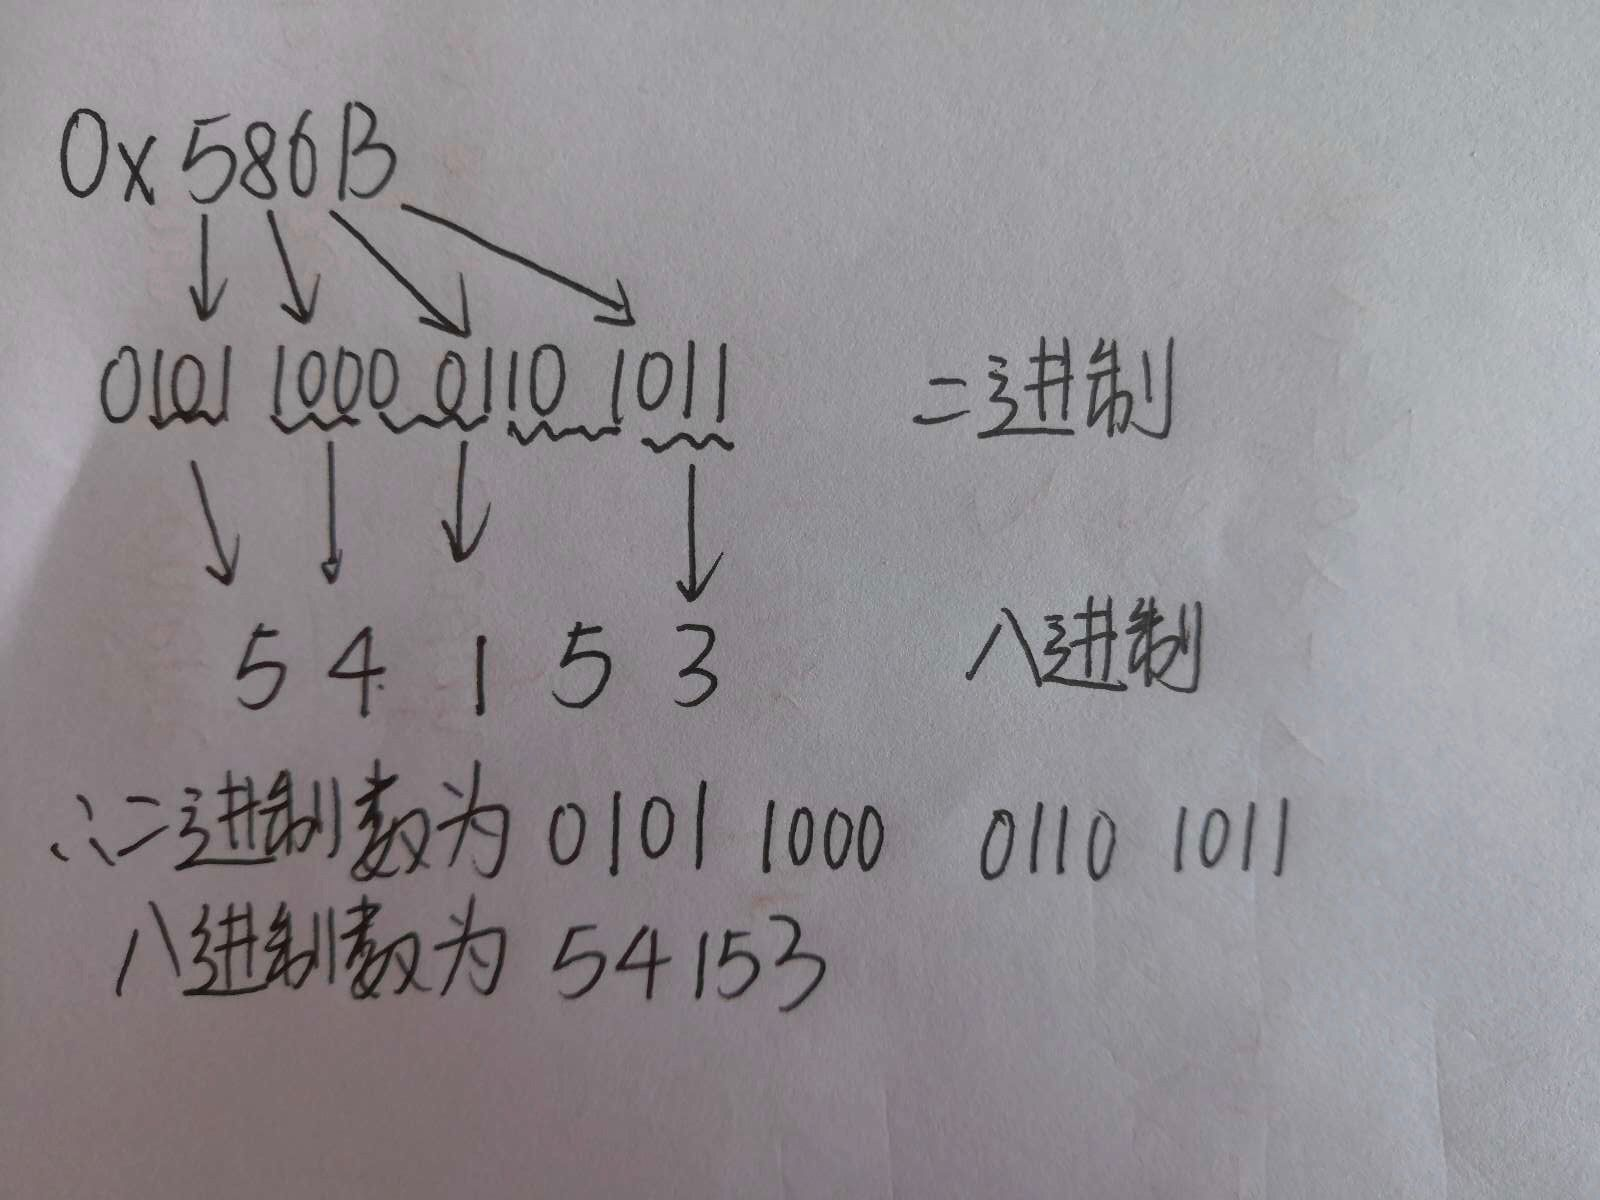 0x586B
0101 1000 0110 1011 二进制
5 4 1 5 3 八进制
∴二进制数为 0101 1000 0110 1011
八进制数为 54153